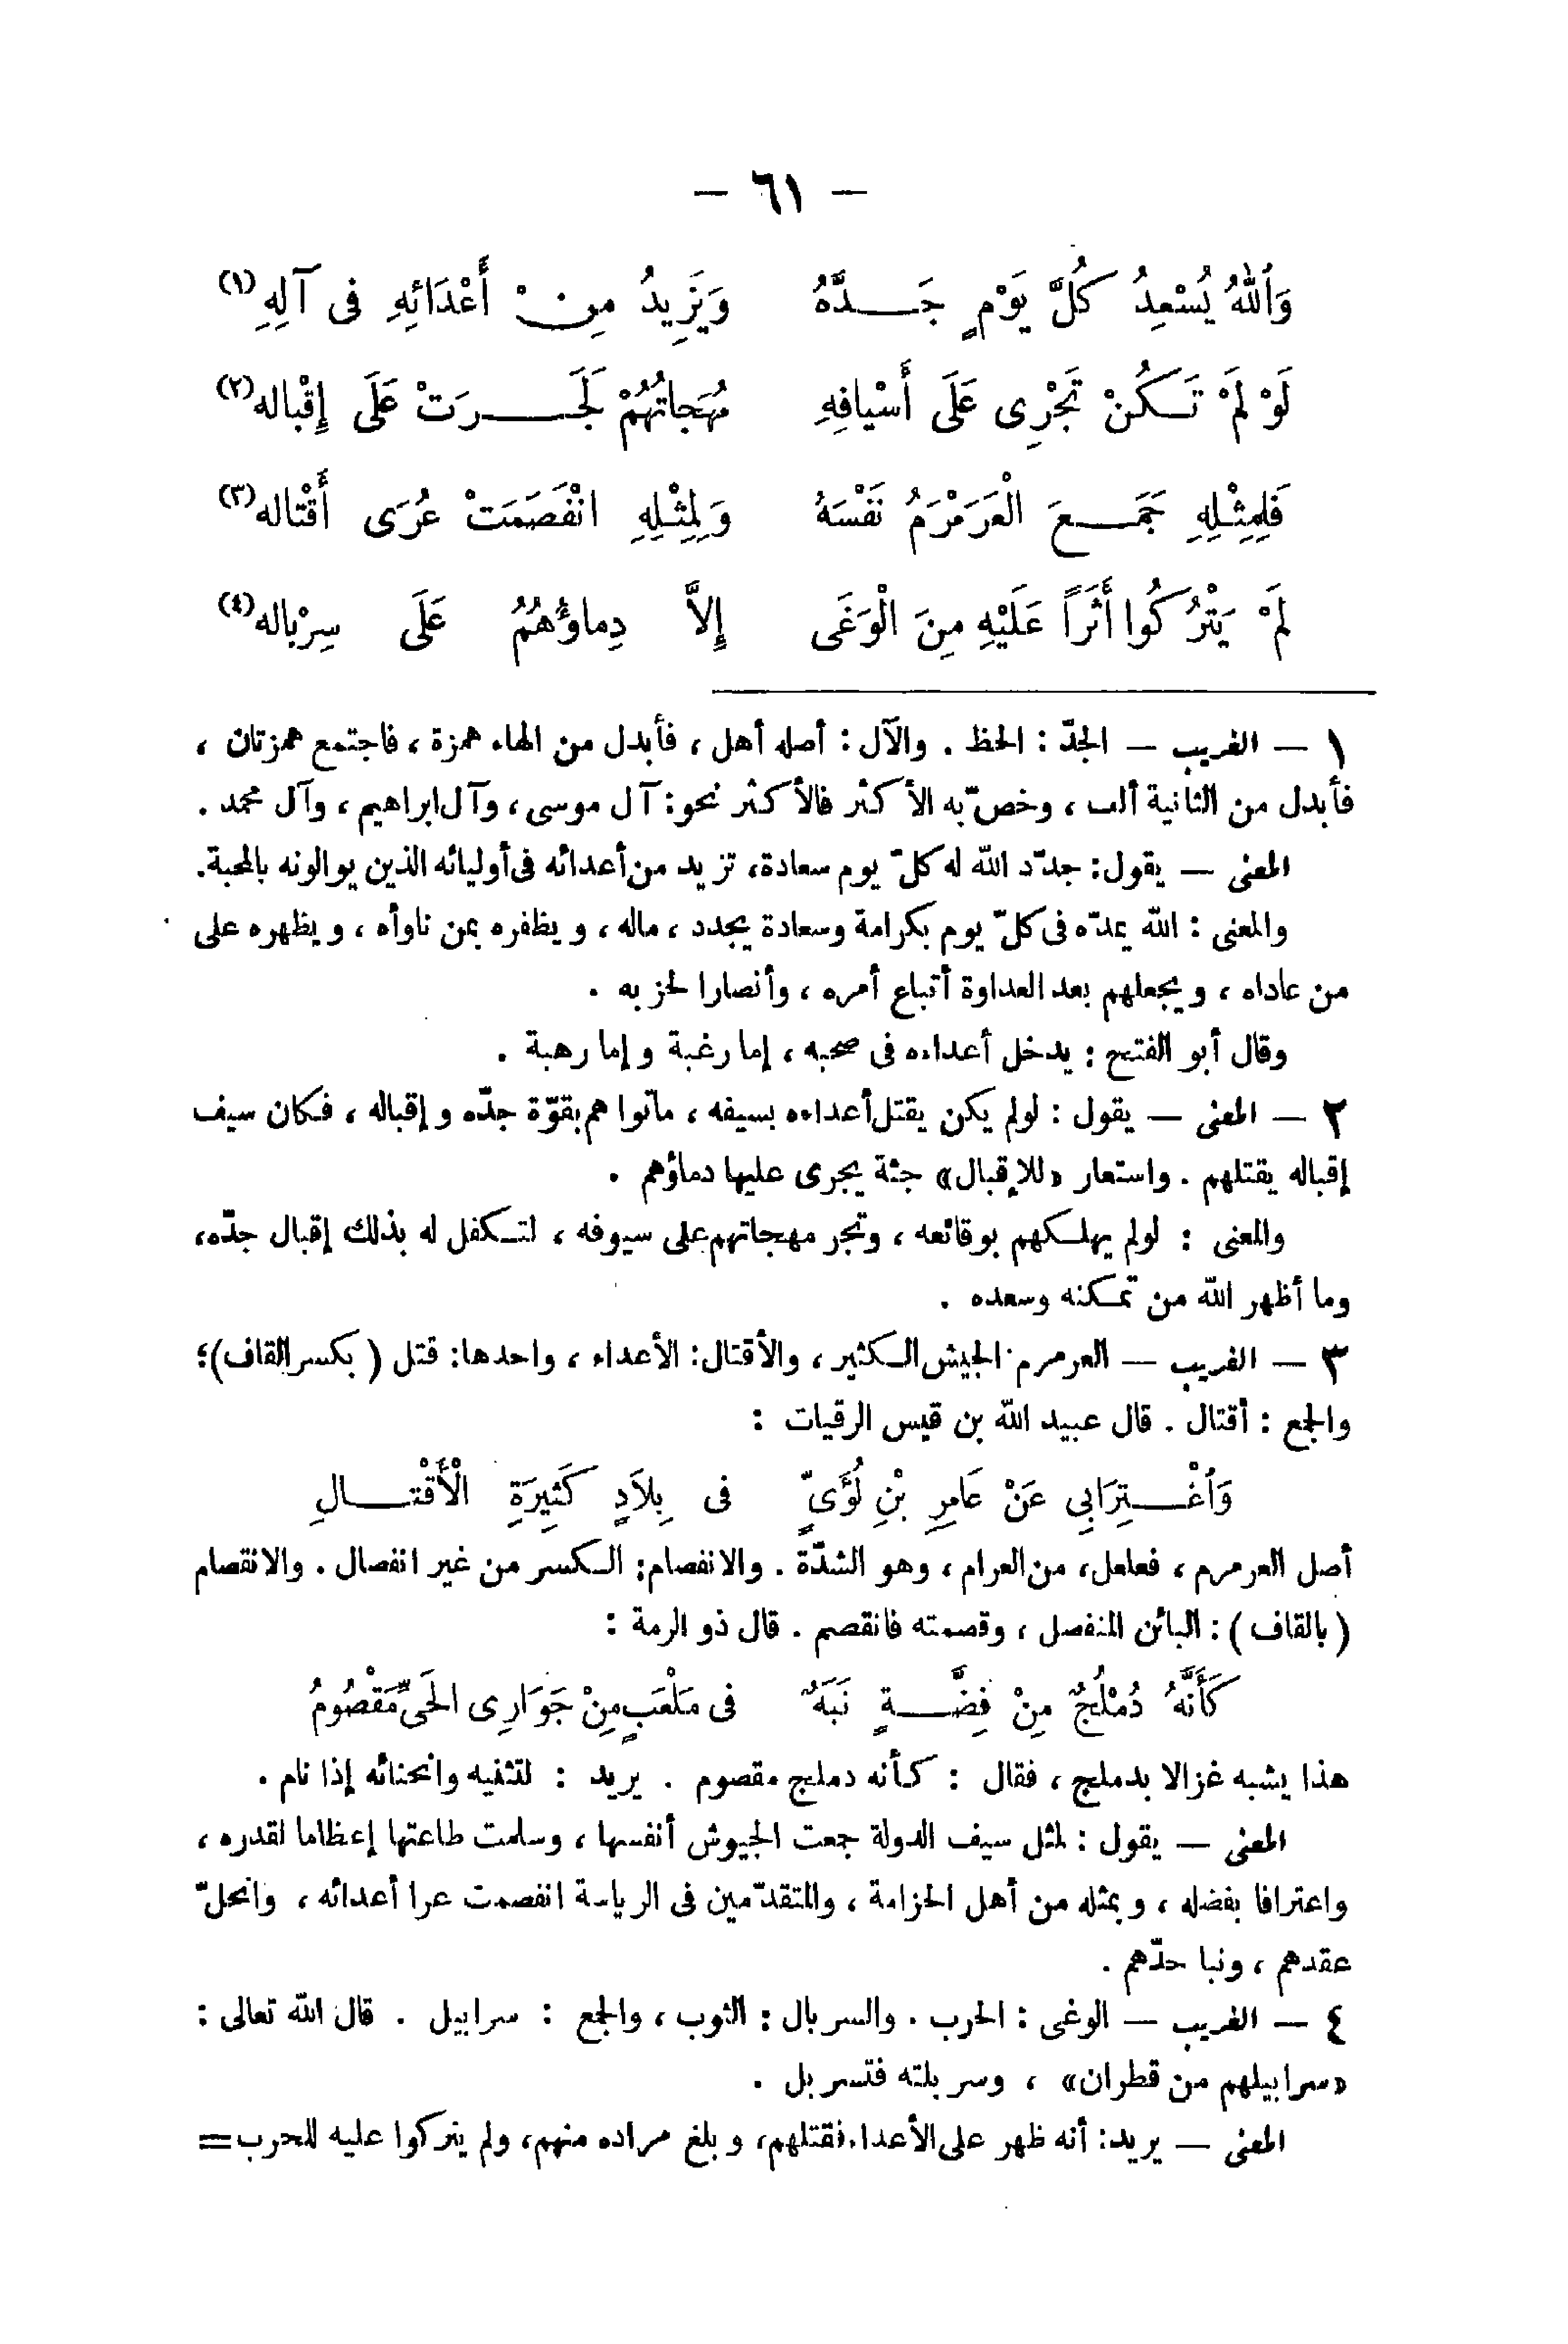 — ٦١ —
وَٱللهُ يُسْعِدُ كُلَّ يَوْمٍ جَدَّهُ وَيَزِيدُ مِنْ أَعْدَائِهِ فى آلِهِ (١)
لَوْ لَمْ تَكُنْ تَجْرِى عَلَى أَسْيافِهِ مُهَجاتُهُمْ لَجَرَتْ عَلَى إِقْباله (٢)
فَلِمِثْلِهِ جَمَعَ الْعَرَمْرَمُ نَفْسَهُ وَلِمِثْلِهِ انْفَصَمَتْ عُرَى أَقْتاله (٣)
لَمْ يَتْرُكُوا أَثَرَاً عَلَيْهِ مِنَ الْوَغَى إِلاَّ دِماؤُهُمُ عَلَى سِرْباله (٤)
١ — الغريب — الجدّ : الحظ . والآل : أصله أهل ، فأبدل من الهاء همزة ، فاجتمع همزتان ،
فأبدل من الثانية ألف ، وخصّ به الأكثر فالأكثر نحو : آل موسى ، وآل ابراهيم ، وآل محمد .
المعنى — يقول : جدّد الله له كلّ يوم سعادة، تزيد من أعدائه فى أوليائه الذين يوالونه بالمحبة.
والمعنى : الله يمدّه فى كلّ يوم بكرامة وسعادة يجدد ، ماله ، ويظفره بمن ناوأه ، ويظهره على
من عاداه ، ويجعلهم بعد العداوة أتباع أمره ، وأنصارا لحزبه .
وقال أبو الفتح : يدخل أعداءه فى صحبه ، إما رغبة وإما رهبة .
٢ — المعنى — يقول : لولم يكن يقتل أعداءه بسيفه ، ماتوا هم بقوّة جدّه وإقباله ، فكان سيف
إقباله يقتلهم . واستعار «للإقبال» جثة يجرى عليها دماؤهم .
والمعنى : لولم يهلكهم بوقائعه ، وتجر مهجاتهم على سيوفه ، لتكفل له بذلك إقبال جدّه،
وما أظهر الله من تمكنه وسعده .
٣ — الغريب — العرمرم الجيش الكثير ، والأقتال: الأعداء ، واحدها: قتل ( بكسر القاف)؛
والجمع : أقتال . قال عبيد الله بن قيس الرقيات :
وَٱغْتِرَابِى عَنْ عَامِرِ بْنِ لُؤَىٍّ فى بِلاَدٍ كَثِيرَةِ الْأَقْتالِ
أصل العرمرم ، فعلعل، من العرام ، وهو الشدّة . والانفصام: الكسر من غير انفصال . والانقصام
( بالقاف ) : البائن المنفصل ، وقصمته فانقصم . قال ذو الرمة :
كَأَنَّهُ دُمْلُجٌ مِنْ فِضَّةٍ نَبَهٌ فى مَلْعَبٍ مِنْ جَوَارِى الحَىِّ مَقْصُومُ
هذا يشبه غزالا بدملج ، فقال : كأنه دملج مقصوم . يريد : لتثنيه وانحنائه إذا نام .
المعنى — يقول : لمثل سيف الدولة جمعت الجيوش أنفسها ، وسلمت طاعتها إعظاما لقدره ،
واعترافا بفضله ، وبمثله من أهل الحزامة ، والمتقدّمين فى الرياسة انفصمت عرا أعدائه ، وانحلّ
عقدهم ، ونبا حدّهم .
٤ — الغريب — الوغى : الحرب . والسربال : الثوب ، والجمع : سرابيل . قال الله تعالى :
«سرابيلهم من قطران» ، وسربلته فتسربل .
المعنى — يريد: أنه ظهر على الأعداء فقتلهم، وبلغ مراده منهم، ولم يتركوا عليه للحرب =